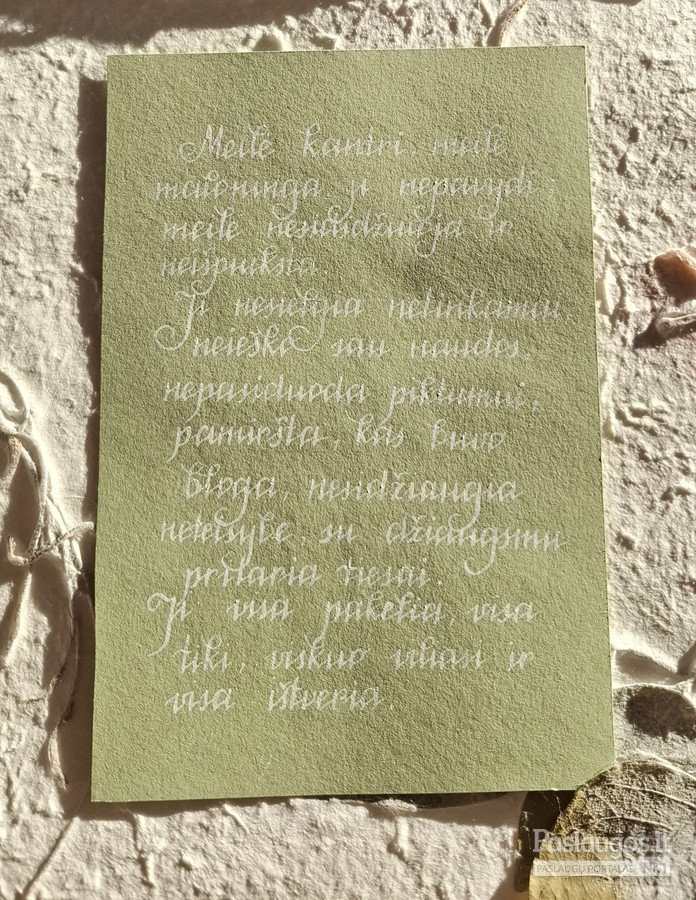 Meilė kantri, meilė
maloninga, ji nepavydi;
meilė nesididžiuoja ir
neišpuiksta.
Ji nesielgia netinkamai,
neieško sau naudos,
nepasiduoda piktumui,
pamiršta, kas buvo
bloga, nesidžiaugia
neteisybe, su džiaugsmu
pritaria tiesai.
Ji visa pakelia, visa
tiki, viskuo viliasi ir
visa ištveria.
Paslaugos.lt
PASLAUGŲ PORTALAS NR.1